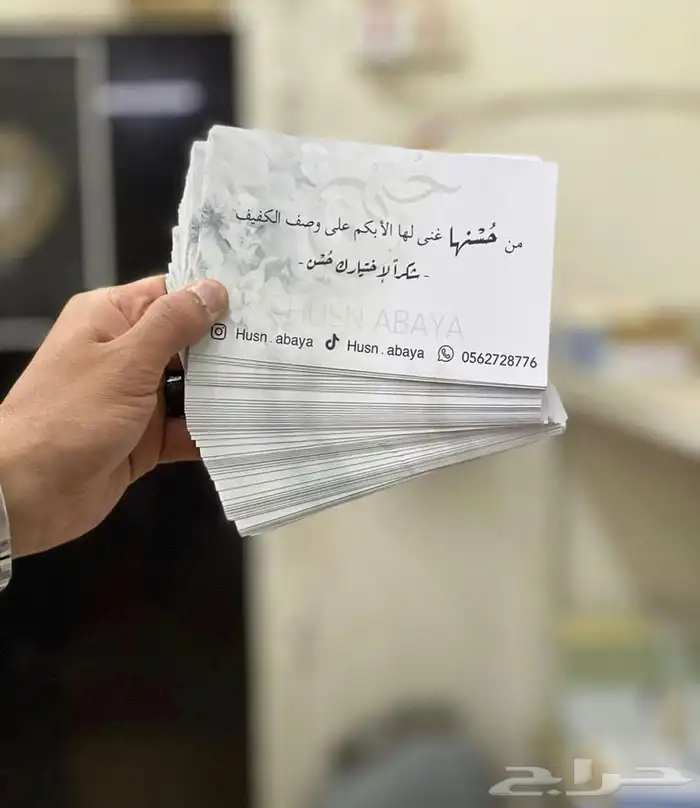 من حُسْنها غنى لها الأبكم على وصف الكفيف
- شكراً لإختيارك حُسْن -
HUSN ABAYA
Husn . abaya Husn . abaya 0562728776
حراج